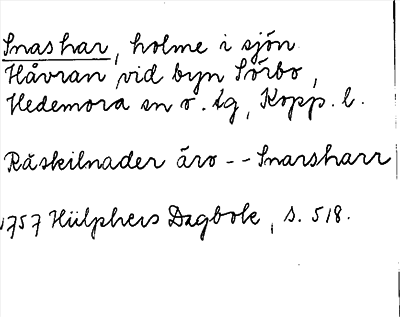 Snashar, holme i sjön
Håvran vid byn Sörbo,
Hedemora sn o. tg, Kopp. l.
Råskilnader äro -- Snarsharr
1757 Hülphers Dagbok, s. 518.